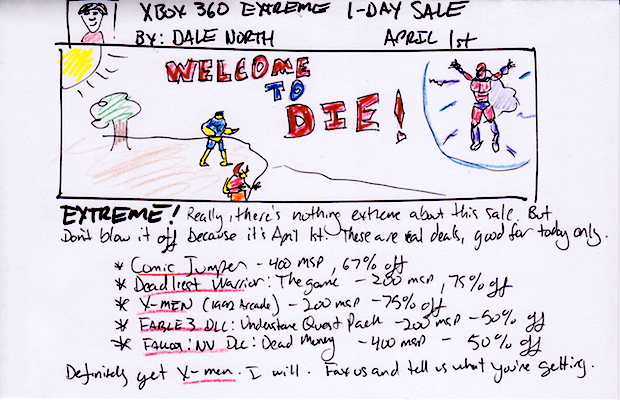 XBOX 360 EXTREME 1-DAY SALE
BY: DALE NORTH APRIL 1st
WELCOME
TO
DIE!
EXTREME! Really, there's nothing extreme about this sale. But
Don't blow it off because it's April 1st. These are real deals, good for today only.
* Comic Jumper - 400 msp, 67% off
* Deadliest Warrior: The game - 200 msp, 75% off
* X-MEN (1992 Arcade) - 200 msp - 75% off
* FABLE 3 DLC: Understone Quest Pack - 200 msp - 50% off
* Fallout: NV DLC: Dead Money - 400 msp - 50% off
Definitely get X-men. I will. Fax us and tell us what you're getting.